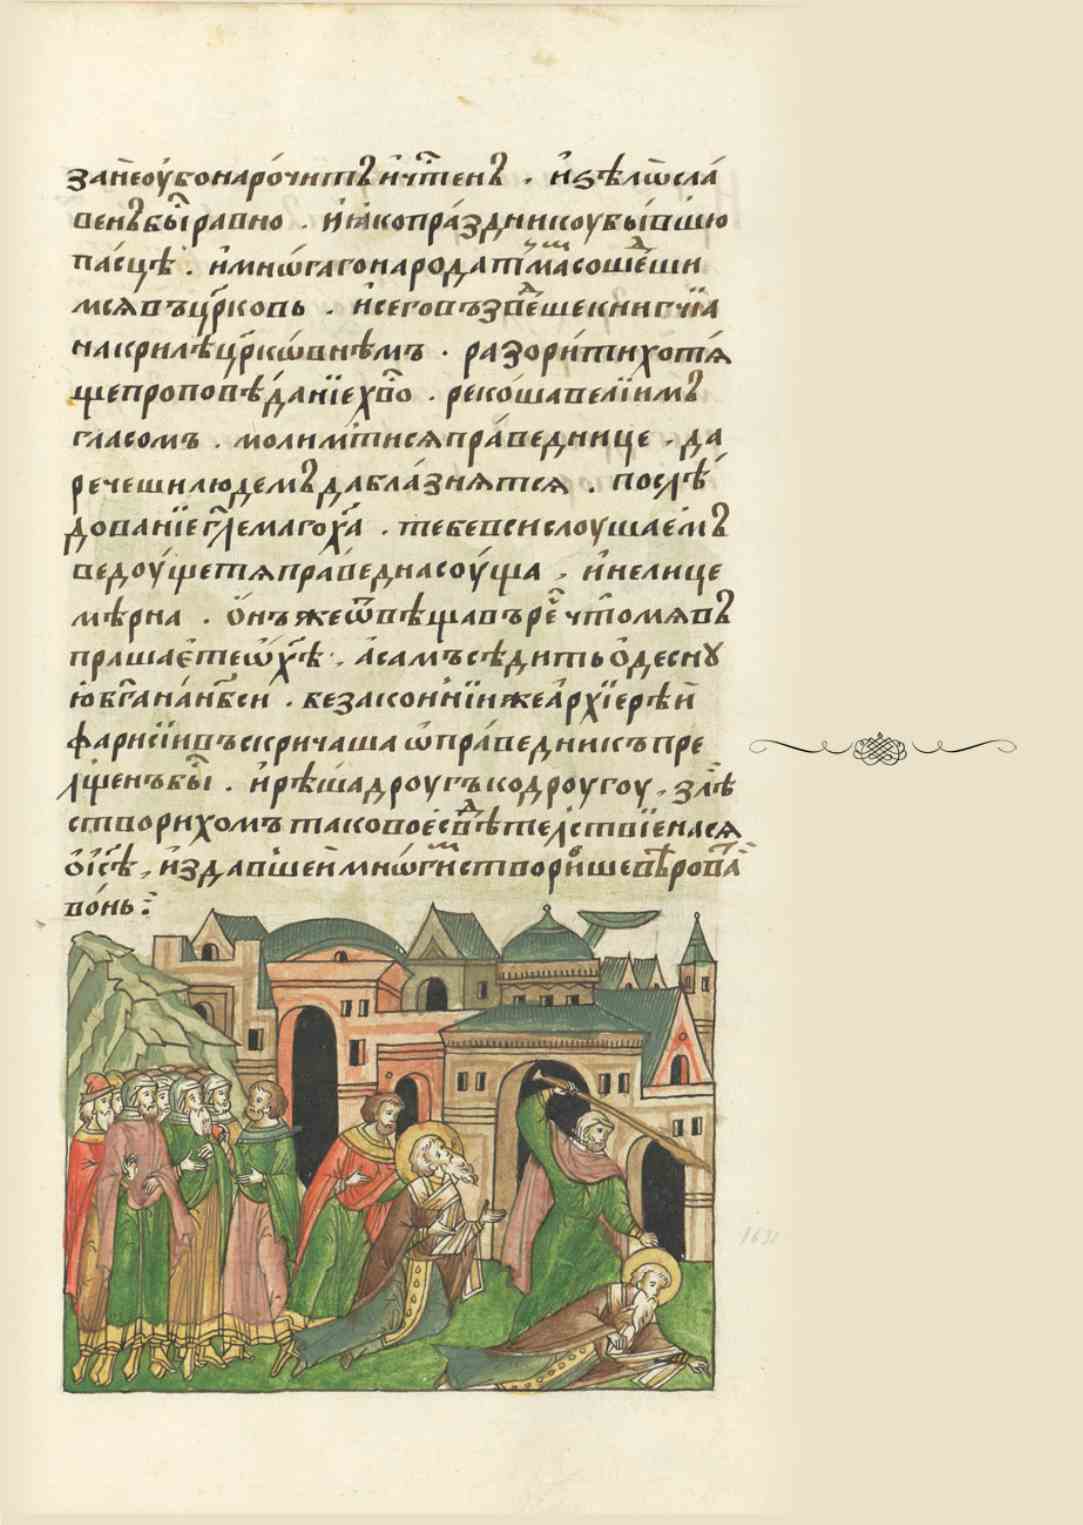 зане оубо нарочитъ и чт҃енъ . и ѕѣлѡ сла
венъ бы́ равно . и ꙗко празднику бывшю
пасцѣ . и многаго народа тꙋ мᲂ̑ сошеши
мся въ цр҃ковь . и сего възведше книгчїа
на крилѣ цр҃ковнѣмъ . разорити хотѧ
ще проповѣданїе хв҃о . рекоша велїимъ
гласомъ . молим ти ся праведниче . да
речеши людемъ да блазнѧтся . послѣ
дованїе гл҃емаго х҃а . тебе вси слоушаемъ
ведоуще тѧ праведна соуща , и нелице
мѣрна . ѻнъ же ѿвѣщавъ рече что мѧ въ
прашаете ѡ х҃ѣ , а самъ сѣдить ѻдесну
ю б҃га на нб҃си . безаконнїи же архїерѣи
фарисїи въскричаша ѡ праведникъ пре
лщенъ бы́ . и рѣша дроугъ ко дроугоу , злѣ
створихомъ таковое свѣдѣтелствїе на ся
ѻ і҃сѣ , издавшеи многим створивше вѣроват
вонь :